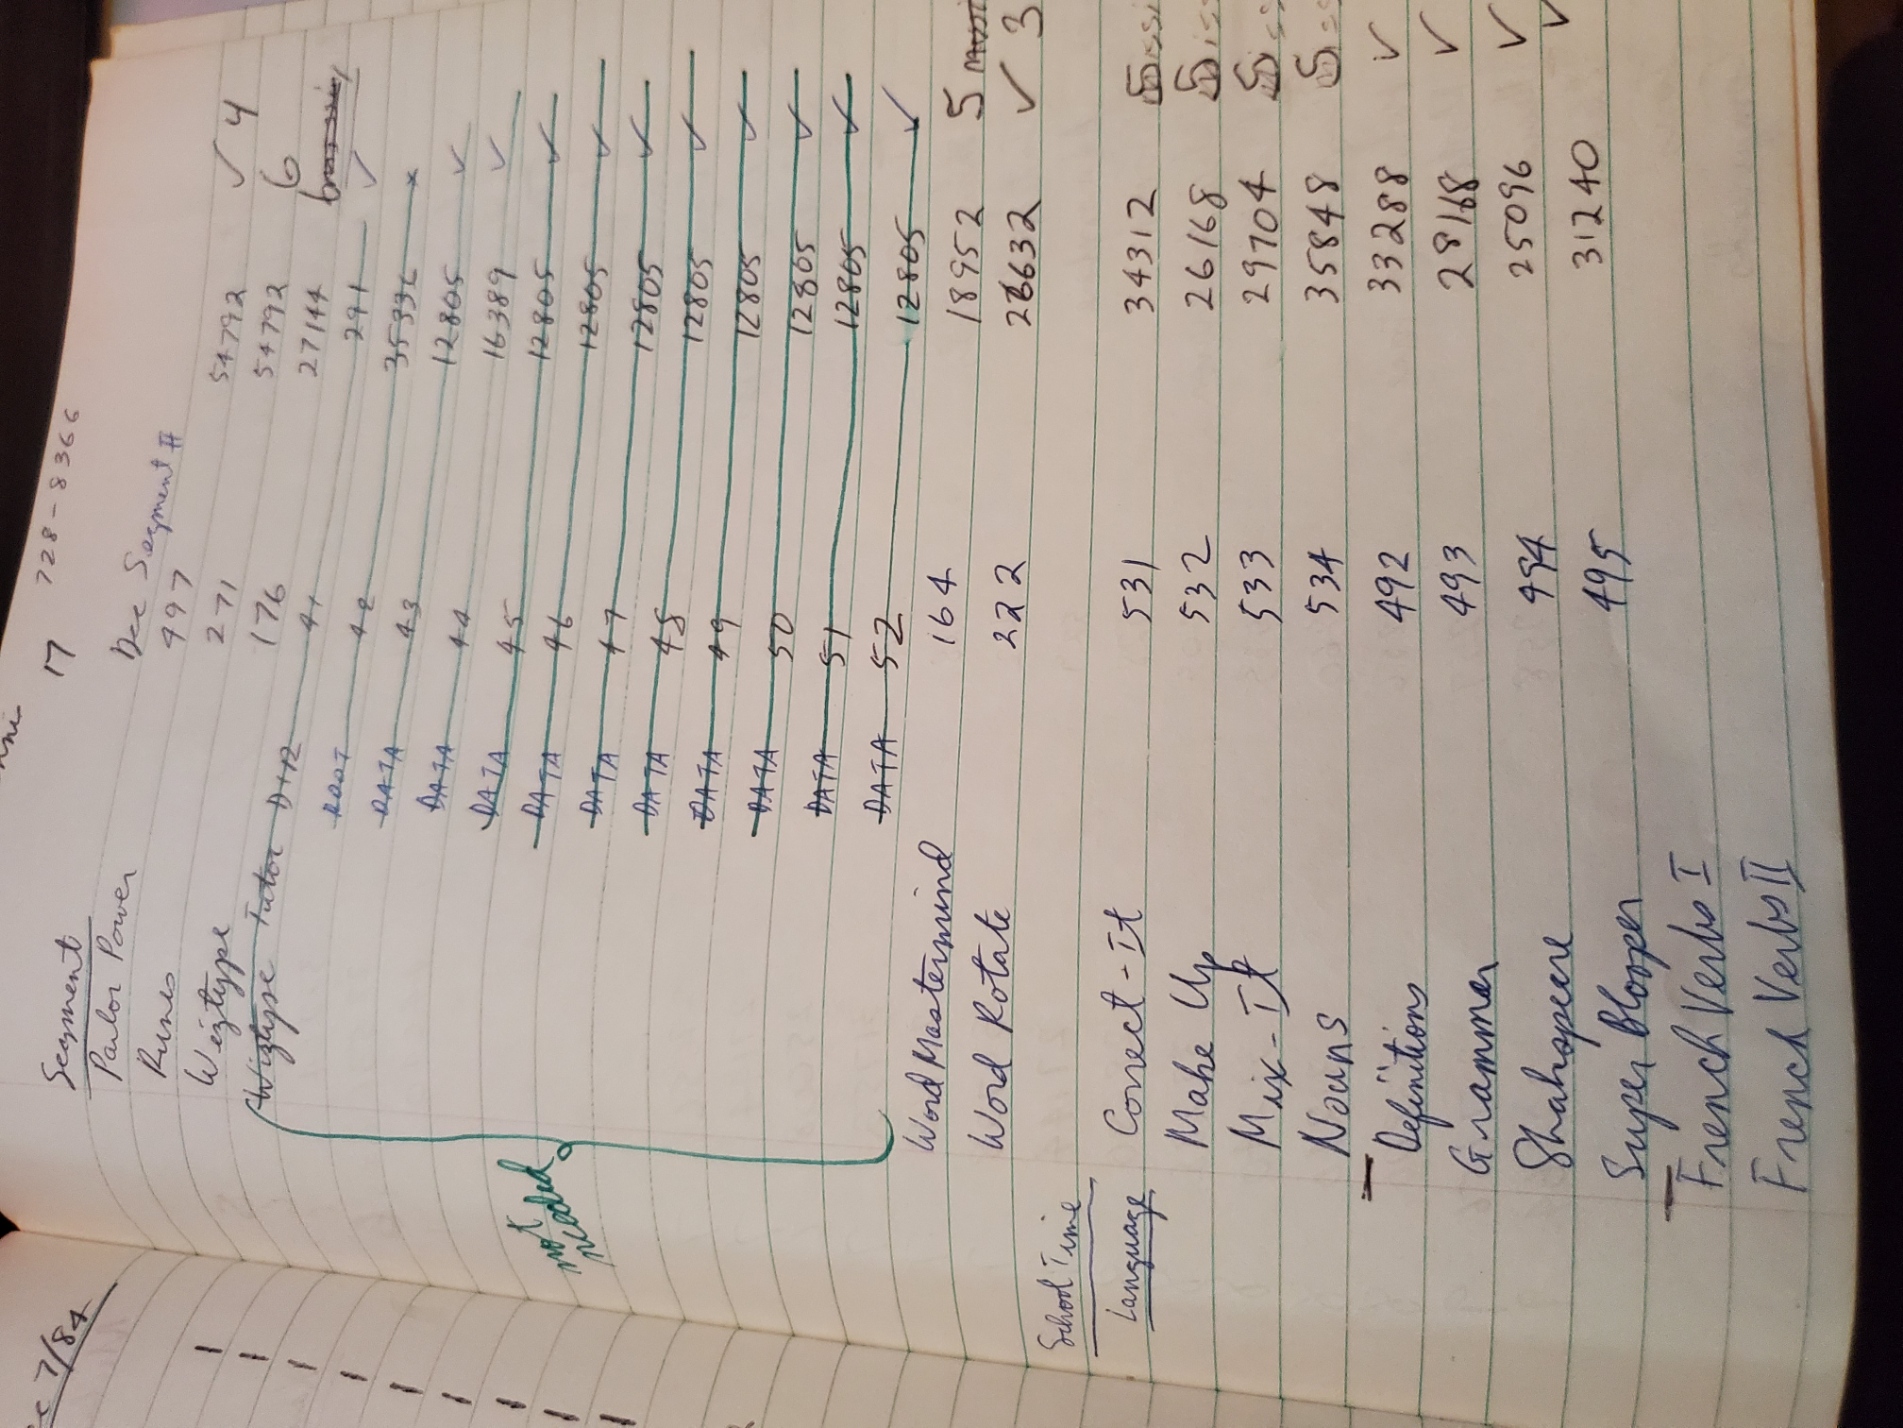 17 728-8366
Segment Dec Segment #
Parlor Power 497 54792 ✓ 4
Runes 271 54792 6
Wiztype 176 27144
Wiztype Tutor DIR 41 291 ✓
ROOT 42 35336 x
DATA 43 12805 ✓
DATA 44 16389 ✓
DATA 45 12805 ✓
DATA 46 12805 ✓
DATA 47 12805 ✓
DATA 48 12805 ✓
DATA 49 12805 ✓
DATA 50 12805 ✓
DATA 51 12805 ✓
DATA 52 12805 ✓
not
needed
Word Mastermind 164 18952 5
Word Rotate 222 26632 ✓ 3
School Time
Language Correct-It 531 34312 5
Make Up 532 26168 5
Mix-It 533 29704 5
Nouns 534 35848 5
Definitions 492 33288 ✓
Grammer 493 28168 ✓
Shahspeere 494 25096 ✓
Super Blooper 495 31240 ✓
French Verbs I
French Verbs II
7/84